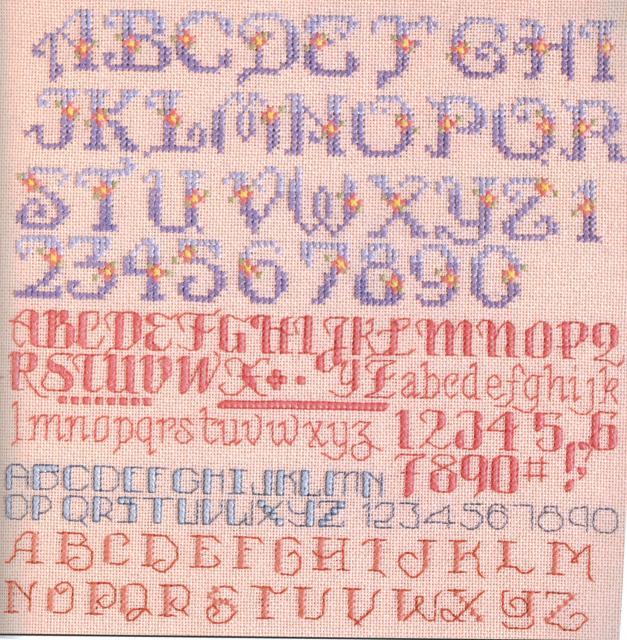 ABCDEFGHI
JKLMNOPQR
STUVWXYZ1
234567890
ABCDEFGHIJKLMNOPQ
RSTUVWX+.. YZabcdefghijk
lmnopqrstuvwxyz 12345,6
7890#!?
ABCDEFGHIJKLMN
OPQRSTUVWXYZ 1234567890
ABCDEFGHIJKLM
NOPQRSTUVWXYZ